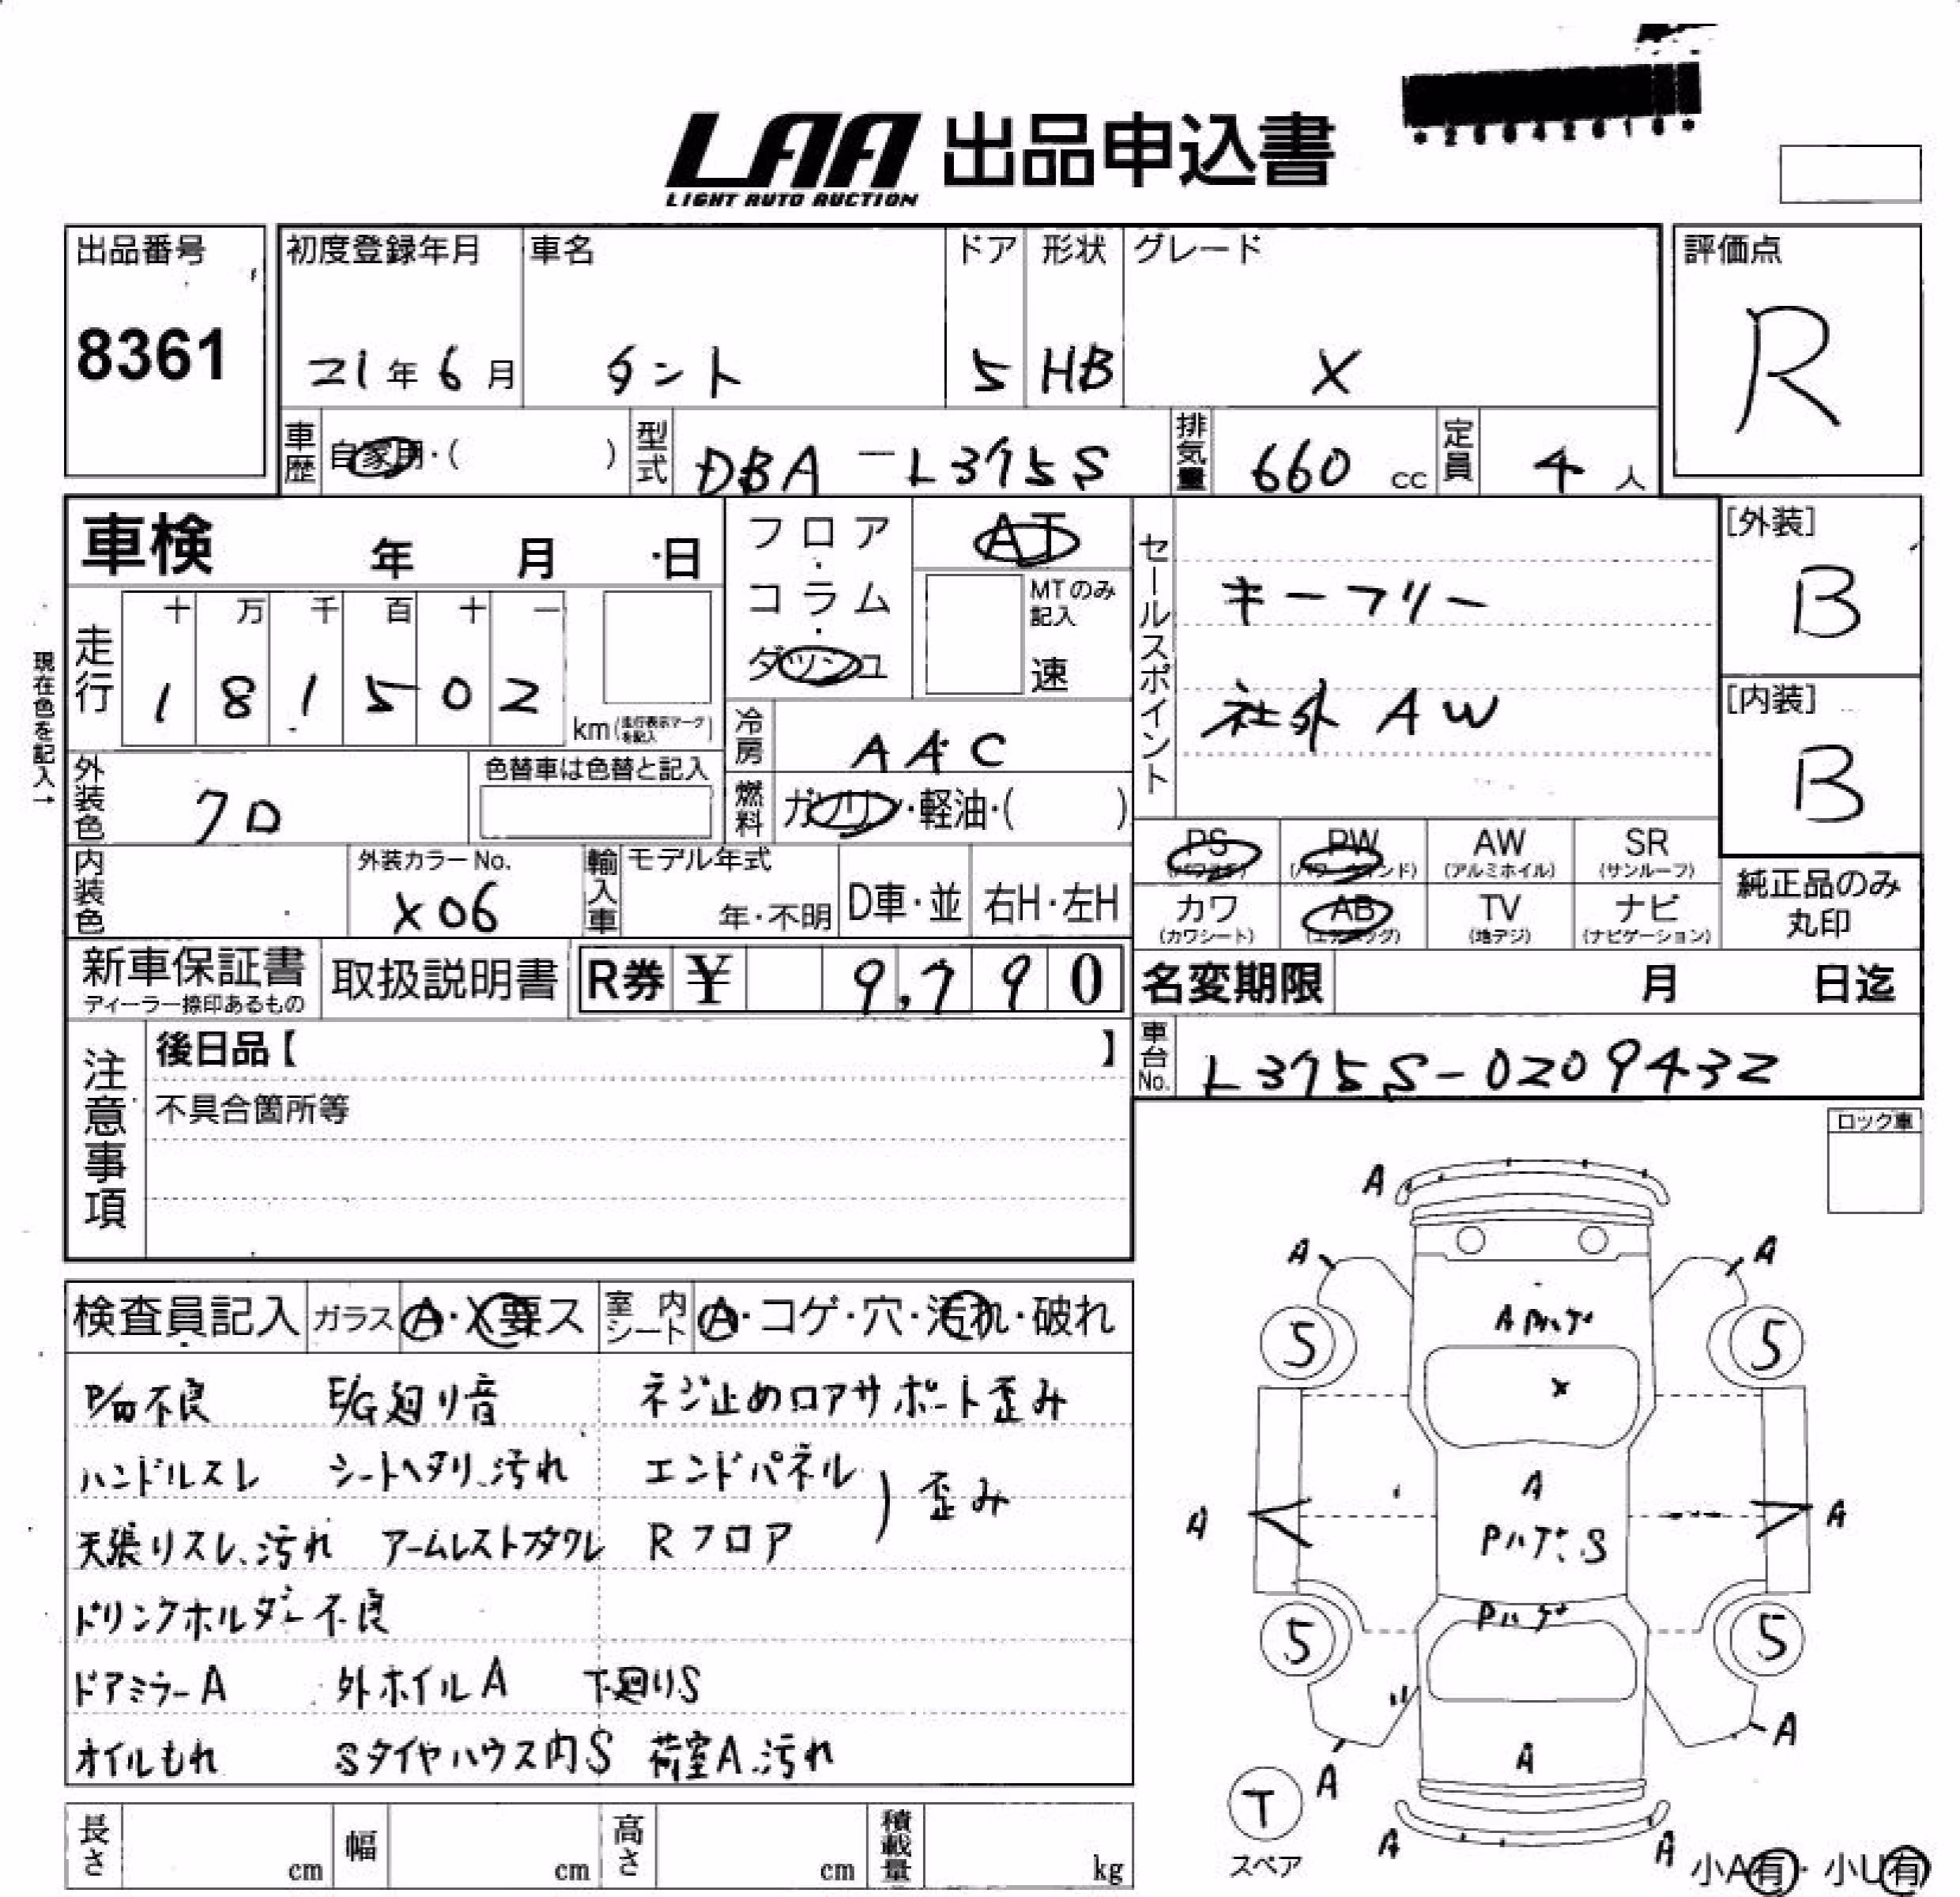 LAA 出品申込書
LIGHT AUTO AUCTION
出品番号 初度登録年月 車名 ドア 形状 グレード 評価点
8361 21年6月 タント 5 HB X R
車歴 自家用・( ) 型式 DBA-L375S 排気量 660 cc 定員 4 人
車検 年 月 日 フロア・コラム・ダッシュ AT
MTのみ記入 速
セールスポイント
キーフリー
社外 AW
[外装] B
[内装] B
現在色を記入→
走行 十 万 千 百 十 一
1 8 1 5 0 2 km (走行表示マークを記入)
冷房 AAC
外装色 クロ 色替車は色替と記入 燃料 ガソリン・軽油・( )
内装色 外装カラーNo. X06 輸入車 モデル年式 年・不明 D車・並 右H・左H
PS (パワステ) PW (パワーウインド) AW (アルミホイル) SR (サンルーフ)
カワ (カワシート) AB (エアバッグ) TV (地デジ) ナビ (ナビゲーション)
純正品のみ丸印
新車保証書 ディーラー捺印あるもの 取扱説明書 R券 ¥ 9,790 名変期限 月 日迄
車台No. L375S-0209432
注意事項 後日品【 】
不具合箇所等
ロック車
検査員記入 ガラス A・X要ス 室内シート A・コゲ・穴・汚れ・破れ
P/W不良 E/G廻り音 ネジ止めロアサポート歪み
ハンドルスレ シートヘタリ、汚れ エンドパネル
天張りスレ、汚れ アームレストフタワレ Rフロア ) 歪み
ドリンクホルダー不良
ドアミラーA 外ホイルA 下廻りS
オイルもれ Sタイヤハウス内S 荷室A、汚れ
A
A A
A ハゲ
5 5
X
A
A A
Pハゲ、S
Pハゲ
5 5
A
A A
T
スペア
A A
小A有・小U有
長さ cm 幅 cm 高さ cm 積載量 kg